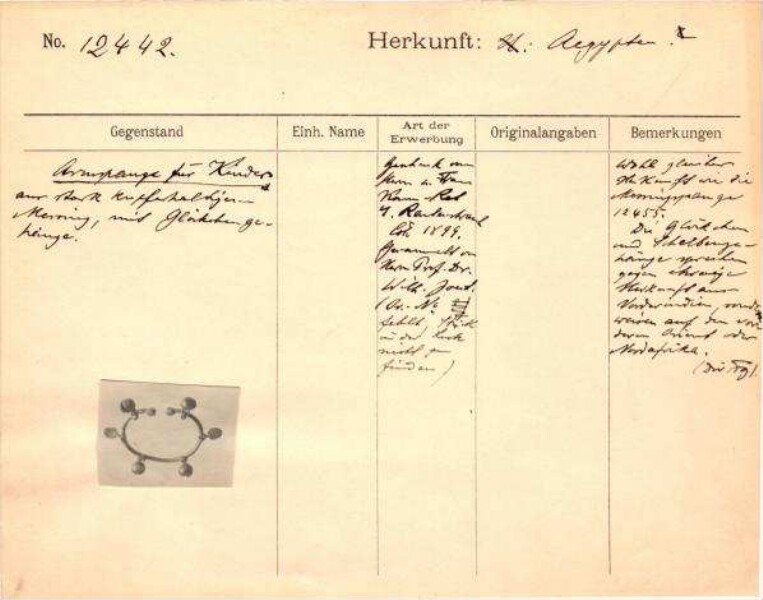 No. 12442.
Herkunft: Aegypten ?
Gegenstand
Einh. Name
Art der Erwerbung
Originalangaben
Bemerkungen
Armspange für Kinder
aus stark kupferhaltigem
Messing, mit Glöckchenge-
hänge.
Geschenk von
Herrn u. Frau
Cöln 1899.
Gesammelt von
Herrn Prof. Dr.
Wilh. Joest.
(Or. No.
fehlt, Stück
in der Liste
nicht zu
finden)
Wohl gleicher
Herkunft wie die
Messingspange
12455.
Die Glöckchen
und Schellenge-
hänge sprechen
gegen etwaige
Herkunft aus
Vorderindien,
weisen auf den vor-
deren Orient oder
Nordafrika.